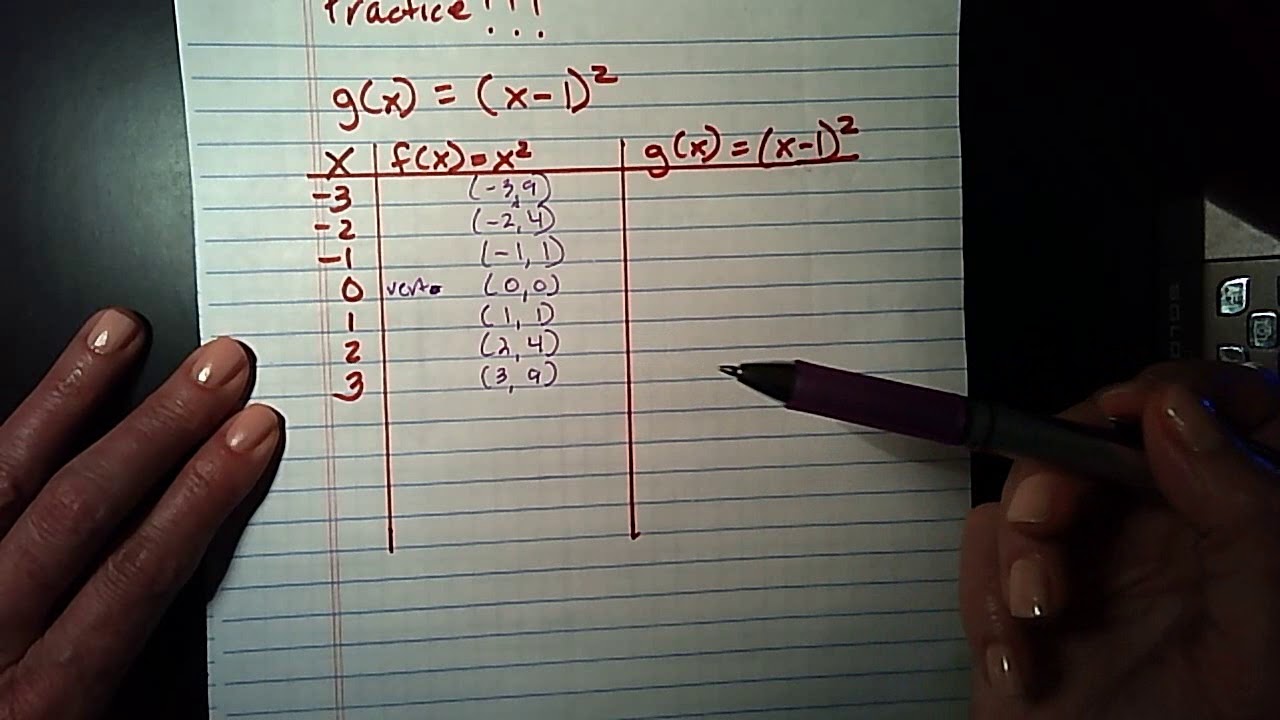 Practice!!!
g(x) = (x-1)²
X f(x) = x² g(x) = (x-1)²
-3 (-3, 9)
-2 (-2, 4)
-1 (-1, 1)
0 (0, 0)
1 (1, 1)
2 (2, 4)
3 (3, 9)